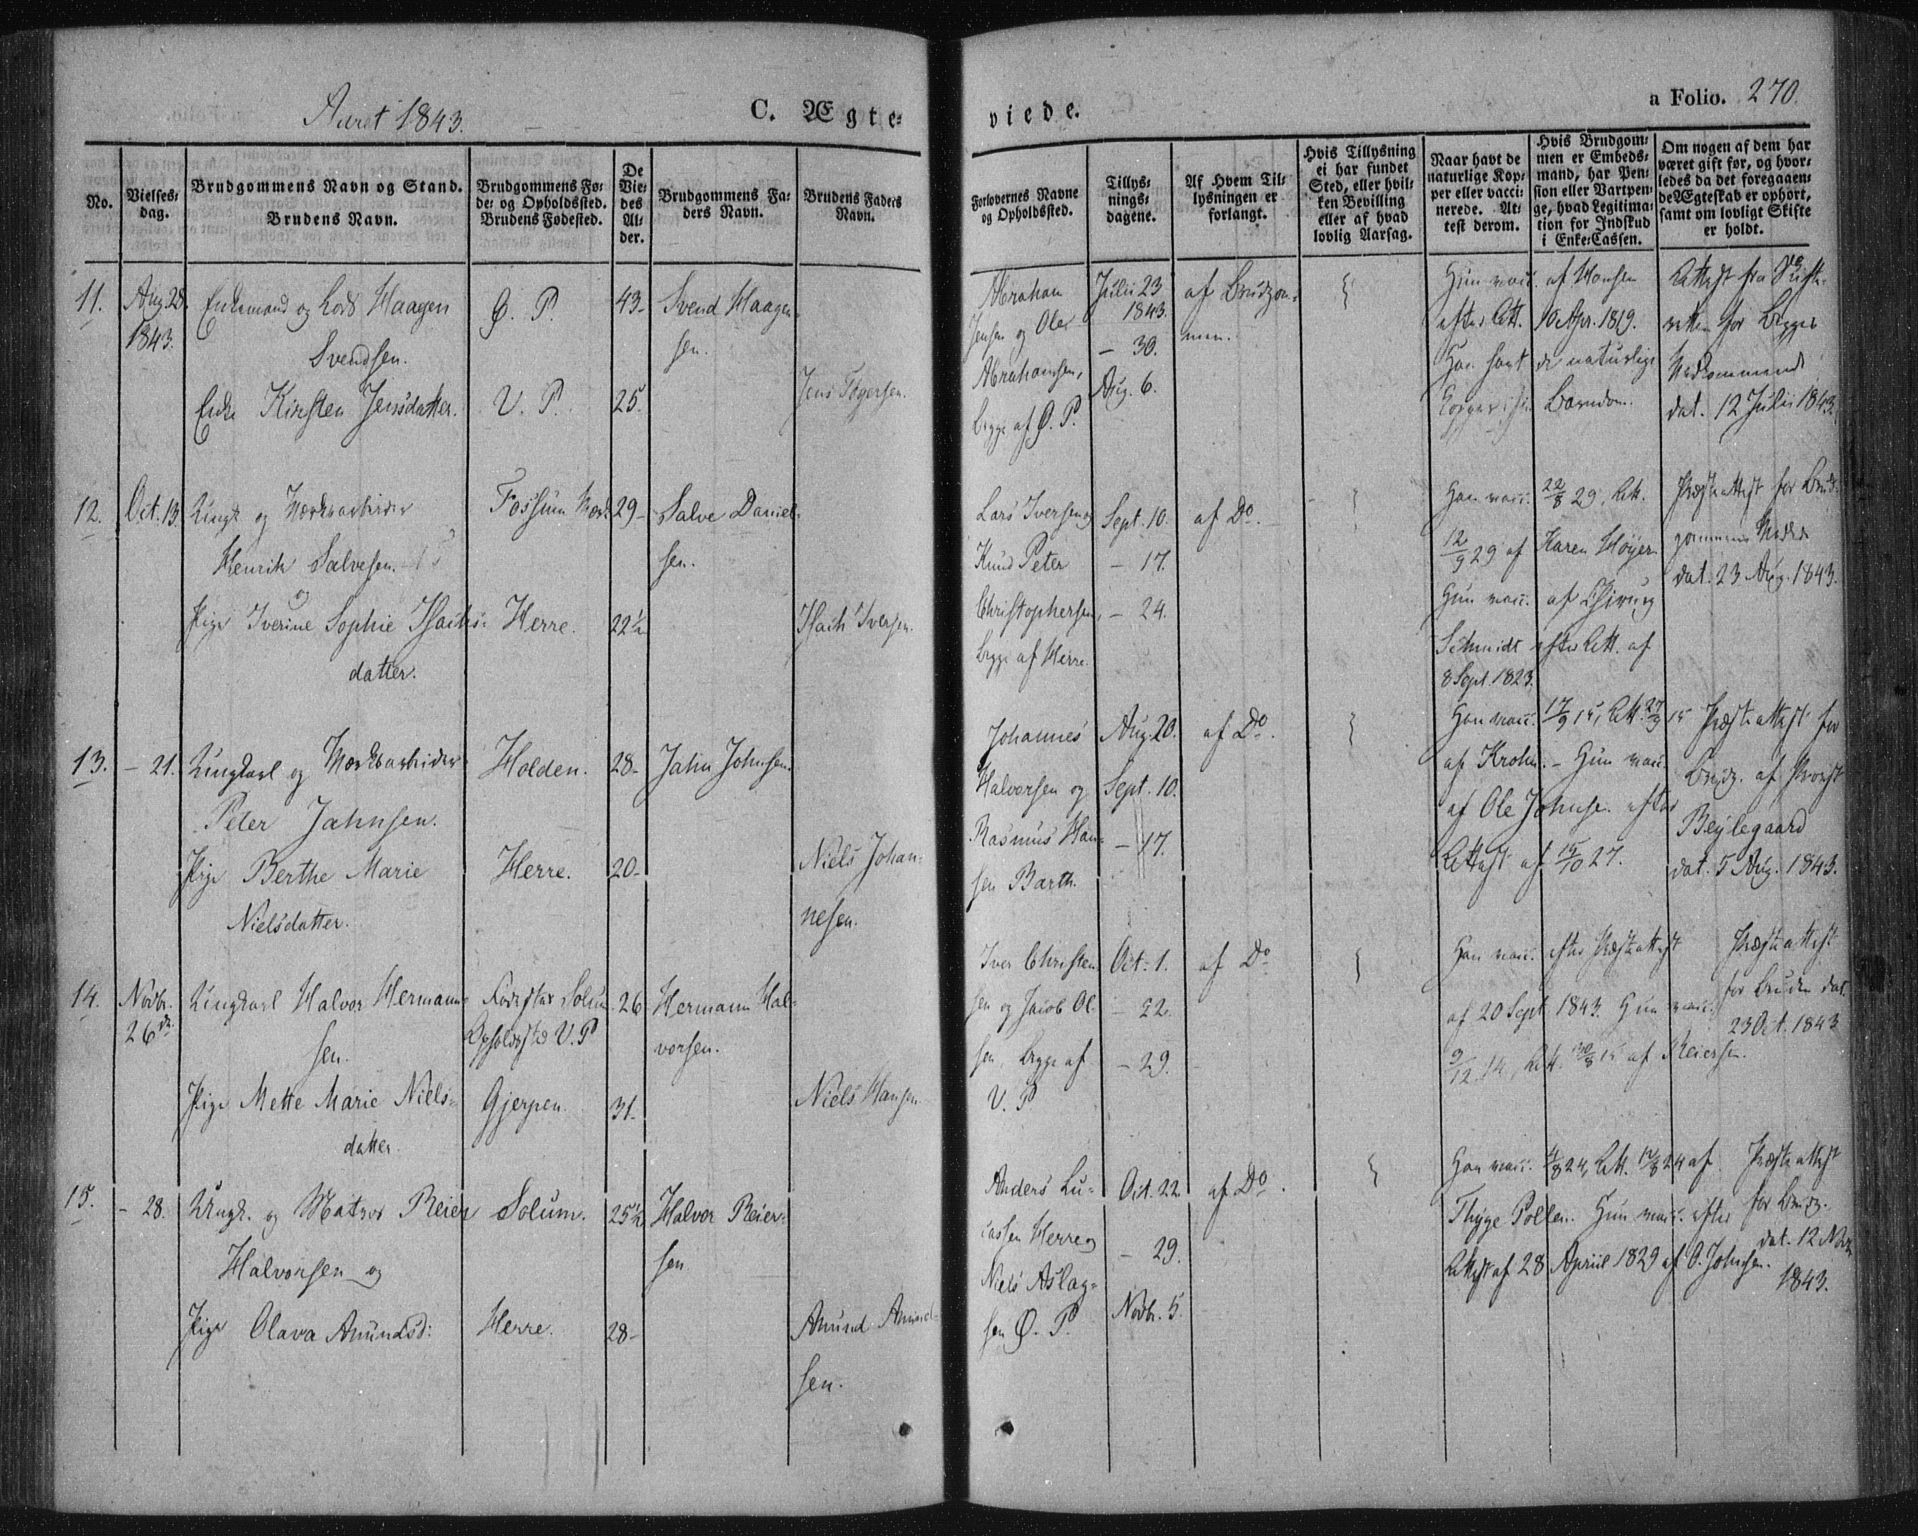 Aaret 1843.
C. Ægte-
viede.
a Folio. 270.
No.
Vielses-
dag.
Brudgommens Navn og Stand.
Brudens Navn.
Brudgommens Fø-
de- og Opholdssted.
Brudens Fødested.
De
Vie-
des
Al-
der.
Brudgommens Fa-
ders Navn.
Brudens Faders
Navn.
Forlovernes Navne
og Opholdssted.
Tillys-
nings-
dagene.
Af Hvem Til-
lysningen er
forlangt.
Hvis Tillysning
ei har fundet
Sted, eller hvil-
ken Bevilling
eller af hvad
lovlig Aarsag.
Naar havt de
naturlige Kop-
per eller vacci-
nerede. At-
test derom.
Hvis Brudgom-
men er Embeds-
mand, har Pen-
sion eller Vartpen-
ge, hvad Legitima-
tion for Indskud
i Enke-Cassen.
Om nogen af dem har
været gift før, og hvor-
ledes da det foregaaen-
de Ægteskab er ophørt,
samt om lovligt Skifte
er holdt.
11.
Aug. 28.
1843.
Enkemand og Lods Haagen
Svendsen.
Enke Kirsten Jensdatter.
Ø. P.
V. P.
43-
25.
Svend Haagen-
sen.
Jens Togersen.
Abraham
Jensen og Ole
Abrahamsen,
begge af Ø. P.
Julii 23
1843.
- 30.
Aug. 6.
af Brudgom-
men.
Hun vacc. af Hansen
efter Att. 10 Apr. 1819.
Han havt de naturlige
Kopper i sin Barndom.
Attest fra Skifte-
retten for begge
Vedkommende
dat. 12 Julii 1843.
12.
Oct. 13.
Ungk. og Værksarbeider
Henrik Salvesen.
og
Pige Iverine Sophie Isachs-
datter.
Fossum Værk
Herre.
29-
22½
Salve Daniel-
sen.
Isach Iversen.
Lars Iversen og
Knud Peter
Christophersen,
begge af Herre.
Sept. 10.
- 17.
- 24.
af Do.
Han vacc. 22/8 29, Att.
12/9 29 af Karen Høyer
Hun vacc. af Chirurg
Schmidt efter Att. af
8 Sept. 1823.
Præsteattest for Brud-
gommens Vedk.
dat. 23 Aug. 1843.
13.
- 21.
Ungkarl og Værksarbeider
Peter Jahnsen.
Pige Berthe Marie
Nielsdatter.
Holden.
Herre.
28-
20-
Jahn Johnsen.
Niels Johan-
nesen.
Johannes
Halvorsen og
Rasmus Han-
sen Barth.
Aug. 20.
Sept. 10.
- 17.
af Do.
Han vacc. 17/9 15, Att. 27/9 15
af Krohn. - Hun vacc.
af Ole Johnsen efter
Attest af 15/10 27.
Præsteattest for
Brudg. af Provst
Beylegaard
dat. 5 Aug. 1843.
14.
Novbr.
26de
Ungkarl Halvor Hermann-
sen.
Pige Mette Marie Niels-
datter.
Fødested Solum
Opholdssted V. P.
Gjerpen
26
31-
Hermann Hal-
vorsen.
Niels Hansen
Iver Christen-
sen og Jacob Ol-
sen, begge af
V. P
Oct. 1.
- 22.
- 29.
af Do
Han vacc. efter Præsteattest
af 20 Sept 1843. Hun vacc.
9/12 14, Att. 30/8 15 af Reiersen.
Præsteattest
for Bruden dat.
23 Oct. 1843
15.
- 28.
Ungk. og Matros Reier
Halvorsen og
Pige Olava Amundsd:
Solum.
Herre.
25½
28-
Halvor Reier-
sen
Amund Amund-
sen.
Anders Lu-
cassen Herre og
Niels Aslag-
sen Ø. P.
Oct. 22
- 29.
Novbr. 5.
af Do.
Han vacc. 4/8 24, Att. 12/8 24 af
Thyge Pollen. Hun vacc. efter
Attest af 28 Apriil 1829 af O. Johnsen.
Præsteattest
for Brudg.
dat. 12 Nov
1843.